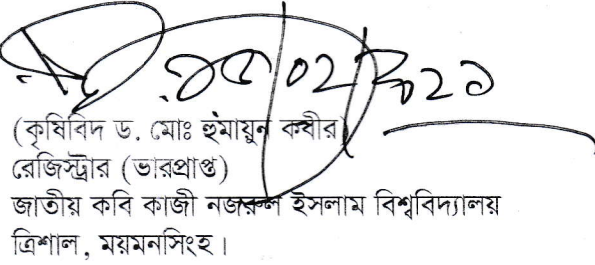 ১৫/০২/২০২১
(কৃষিবিদ ড. মোঃ হুমায়ুন কবীর)
রেজিস্ট্রার (ভারপ্রাপ্ত)
জাতীয় কবি কাজী নজরুল ইসলাম বিশ্ববিদ্যালয়
ত্রিশাল, ময়মনসিংহ।